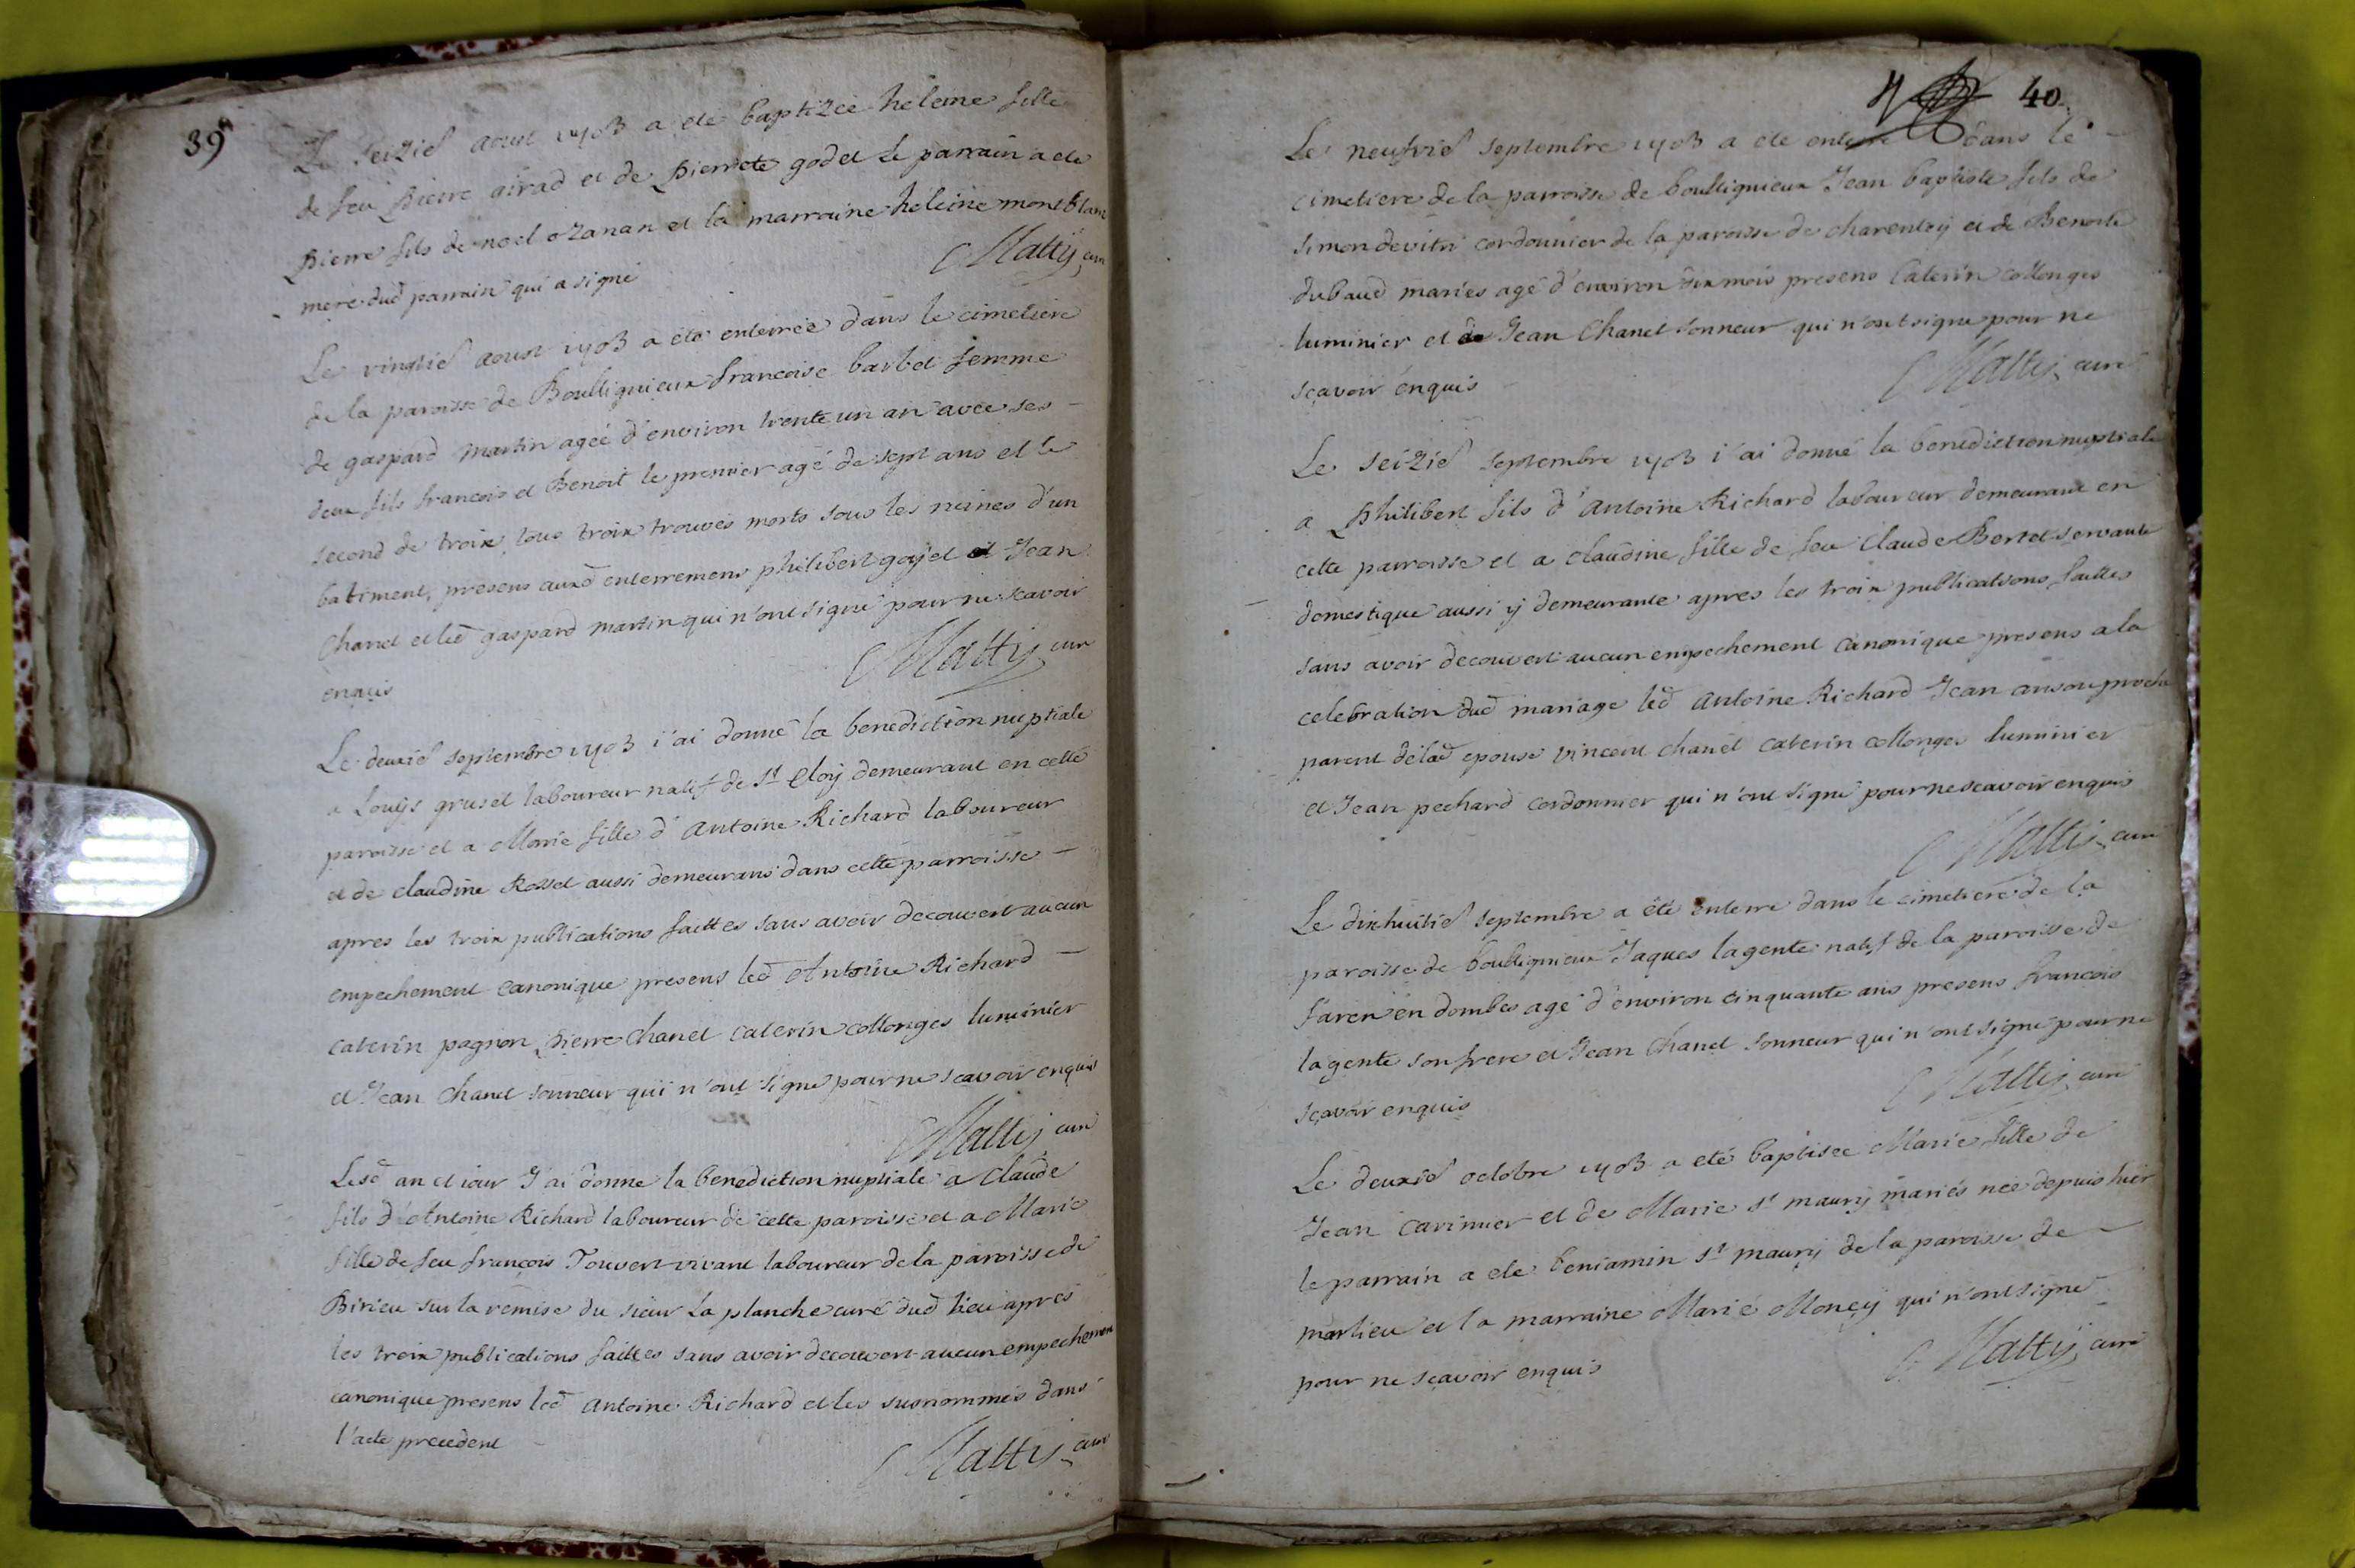 39
Le seizie aoust 1703 a ete baptizée heleine fille
de feu Pierre airad et de Pierrete godet le parrain a ete
Pierre fils de noel ozanan et la marraine heleine montblanc
mere dud parrain qui a signé
Mattÿ curé
Le vingtie aoust 1703 a été enterrée dans le cimetiere
de la paroisse de Boullignieux francoise barbet femme
de gaspard martin agée d'environ trente un an avec ses
deux fils francois et Benoit le premier agé de sept ans et le
second de troix, tous troix trouvés morts sous les ruines d'un
batiment, presens auxd enterremens philibert goyet et Jean
Chanel et led gaspard martin qui n'ont signé pour ne scavoir
enquis
Mattÿ curé
Le deuxie septembre 1703 i'ai donné la benediction nuptiale
a Louÿs gruset laboureur natif de st Eloÿ demeurant en cette
paroisse et a Marie fille d'Antoine Richard laboureur
et de claudine Rosset aussi demeurans dans cette parroisse
apres les troix publications faittes sans avoir decouvert aucun
empechement canonique presens led Antoine Richard
caterin pognon Pierre Chanel caterin collonges luminier
et Jean Chanel sonneur qui n'ont signé pour ne scavoir enquis
Mattÿ curé
Lesd an et iour J'ai donné la benediction nuptiale a Claude
fils d'Antoine Richard laboureur de cette paroisse et a Marie
fille de feu françois Touvert vivant laboureur de la paroisse de
Birieu sur la remise du sieur La planche curé dud lieu apres
les troix publications faittes sans avoir decouvert aucun empechement
canonique presens led Antoine Richard et les susnommés dans
l'acte precedent
Mattÿ curé
40
Le neufvie septembre 1703 a ete enterré dans le
cimetiere de la parroisse de boullignieux Jean baptiste fils de
simon devitri cordonnier de la paroisse de charentoÿ et de Benoite
dubaud mariés agé d'environ six mois presens Caterin collonges
luminier et de Jean Chanel sonneur qui n'ont signe pour ne
sçavoir enquis
Mattÿ curé
Le seizie septembre 1703 i'ai donné la benediction nuptiale
a Philibert fils d'Antoine Richard laboureur demeurant en
cette parroisse et a claudine fille de feu Claude Bertet servante
domestique aussi ÿ demeurante apres les troix publications faittes
sans avoir decouvert aucun empechement canonique presens a la
celebration dud mariage led Antoine Richard Jean anson proche
parent de lad epouse vincent chanel caterin collonges luminier
et Jean pechard cordonnier qui n'ont signé pour ne scavoir enquis
Mattÿ curé
Le dixhuitie septembre a été enterre dans le cimetiere de la
paroisse de boulligneux Jaques lagente natif de la paroisse de
faren en dombes agé d'environ cinquante ans presens francois
lagente son frere et Jean Chanel sonneur qui n'ont signé pour ne
sçavoir enquis
Mattÿ curé
Le deuxie octobre 1703 a eté baptisée Marie fille de
Jean carinier et de Marie st maurÿ mariés nee depuis hier
le parrain a ete beniamin st maurÿ de la paroisse de
marlieu et la marraine Marie Monçÿ qui n'ont signé
pour ne sçavoir enquis
Mattÿ curé